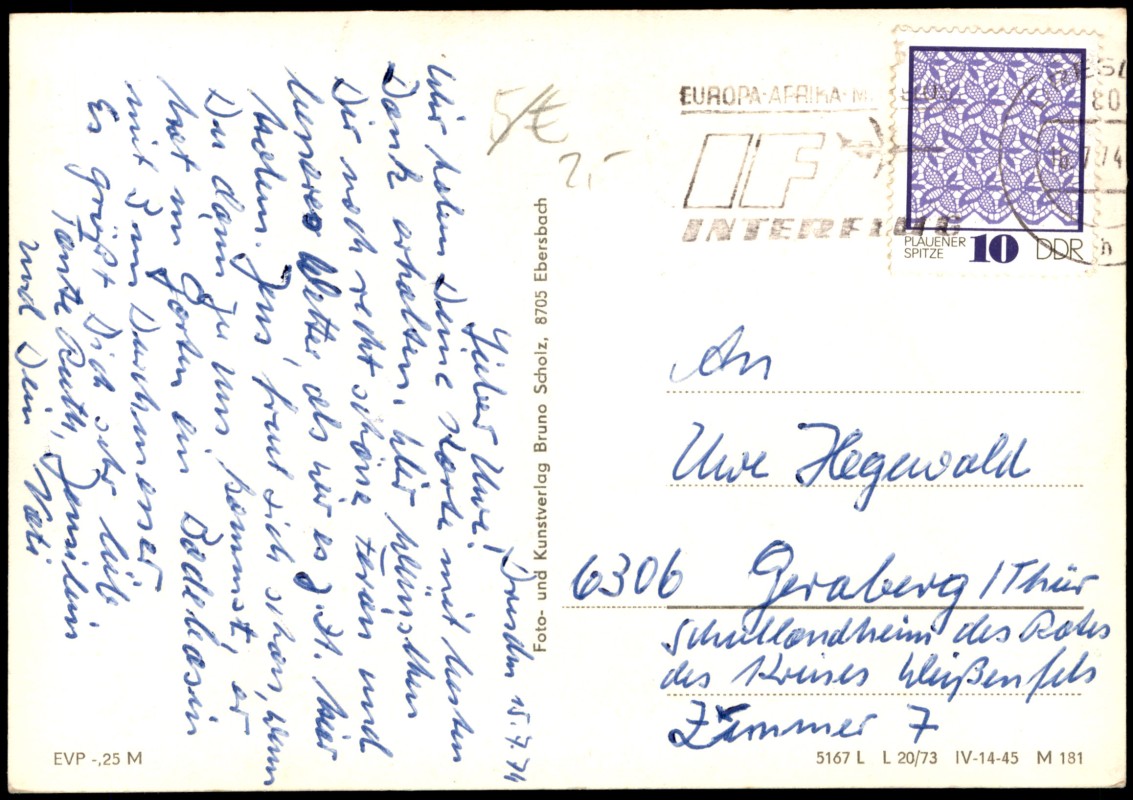 Dresden 15.7.74
Lieber Uwe!
Wir haben Deine Karte mit besten
Dank erhalten. Wir wünschen
Dir noch recht schöne Ferien und
besseres Wetter, als wir es z. Zt. hier
haben. Jens freut sich schon, wenn
Du dann zu uns kommst, er
hat im Garten ein Badebassin
mit 3 m Durchmesser
Es grüßt Dich sehr lieb
Tante Ruth,
und Dein Vati
Foto- und Kunstverlag Bruno Scholz, 8705 Ebersbach
EVP -,25 M
5/€
2,-
EUROPA-AFRIKA-
IF
INTERFLUG
80
16.7.74
h
PLAUENER
SPITZE
10 DDR
An
Uwe Hegewald
6306 Geraberg/Thür
Schullandheim des Rates
des Kreises Weißenfels
Zimmer 7
5167 L L 20/73 IV-14-45 M 181